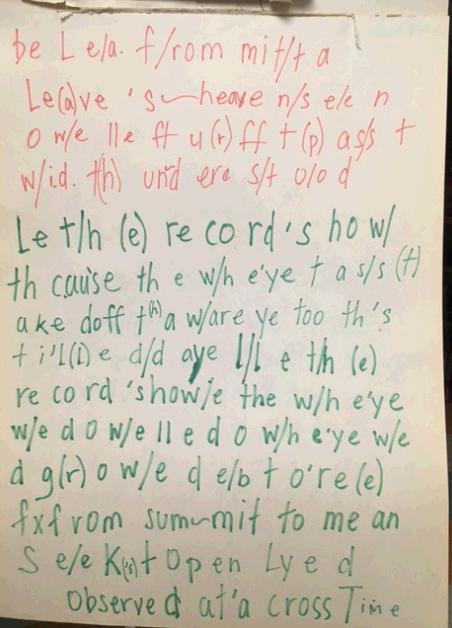 be L e/a. f/rom mit/t a
Le(a)ve 's~heave n/s e/e n
o w/e lle ft u(r) ff t (p) as/s t
w/id. t(h) und ere s/t o/o d
Le t/h (e) re co rd 's ho w/
th cause th e w/h e'ye t a s/s (t)
ake doff t(h) a w/are ye too th's
t i'l(i) e d/d aye l/l e t/h (e)
re co rd 'show/e the w/h e'ye
w/e d o w/e ll e d o w/h e'ye w/e
d g(r) o w/e d e/b t o're (e)
fxf rom sum~mit to me an
S e/e K('s) t open Ly e d
observed at'a cross Time